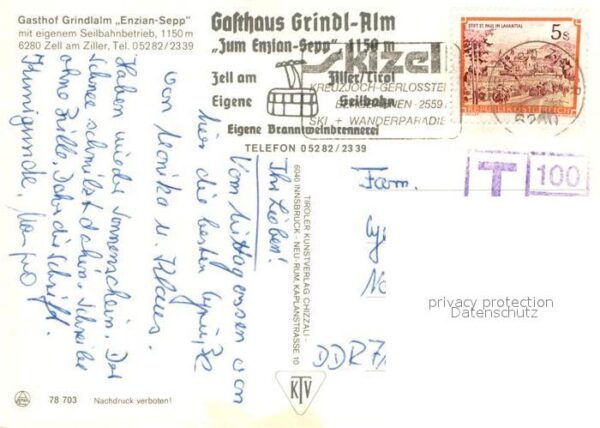 Gasthof Grindlalm „Enzian-Sepp"
mit eigenem Seilbahnbetrieb, 1150 m
6280 Zell am Ziller, Tel. 0 52 82 / 23 39
Gasthaus Grindl-Alm
„Zum Enzian-Sepp" 1150 m
Zell am Ziller/Tirol
Eigene Seilbahn
Eigene Branntweinbrennerei
TELEFON 0 52 82 / 23 39
Skizel
KREUZJOCH-GERLOSSTEI
2559
SKI + WANDERPARADIE
STIFT ST. PAUL IM LAVANTTAL
5 S
REPUBLIK ÖSTERREICH
6280
T 100
Ihr Lieben!
Vom Mittagessen von
hier die besten Grüße
von Monika u. Klaus.
Haben wieder Sonnenschein. Der
Schnee schmilzt dahin. Schreibe
ohne Brille, daher die Schrift.
Fam.
DDR 7
TIROLER KUNSTVERLAG CHIZZALI -
6040 INNSBRUCK - NEU-RUM, KAPLANSTRASSE 10
KTV
78 703 Nachdruck verboten!
privacy protection
Datenschutz